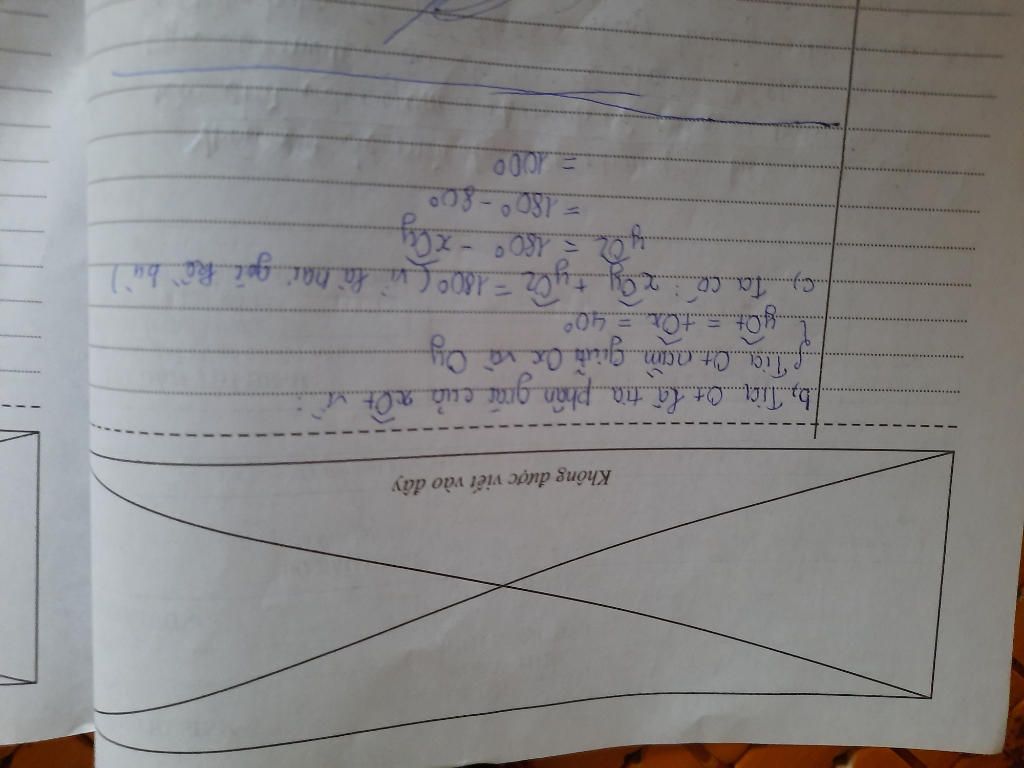 Không được viết vào đây
b, Tia Ot là tia phân giác của xOt vì :
{ Tia Ot nằm giữa Ox và Oy
yOt = tOx = 40°
c, Ta có : xOy + yOz = 180° ( vì là hai góc kề bù )
yOz = 180° - xOy
= 180° - 80°
= 100°